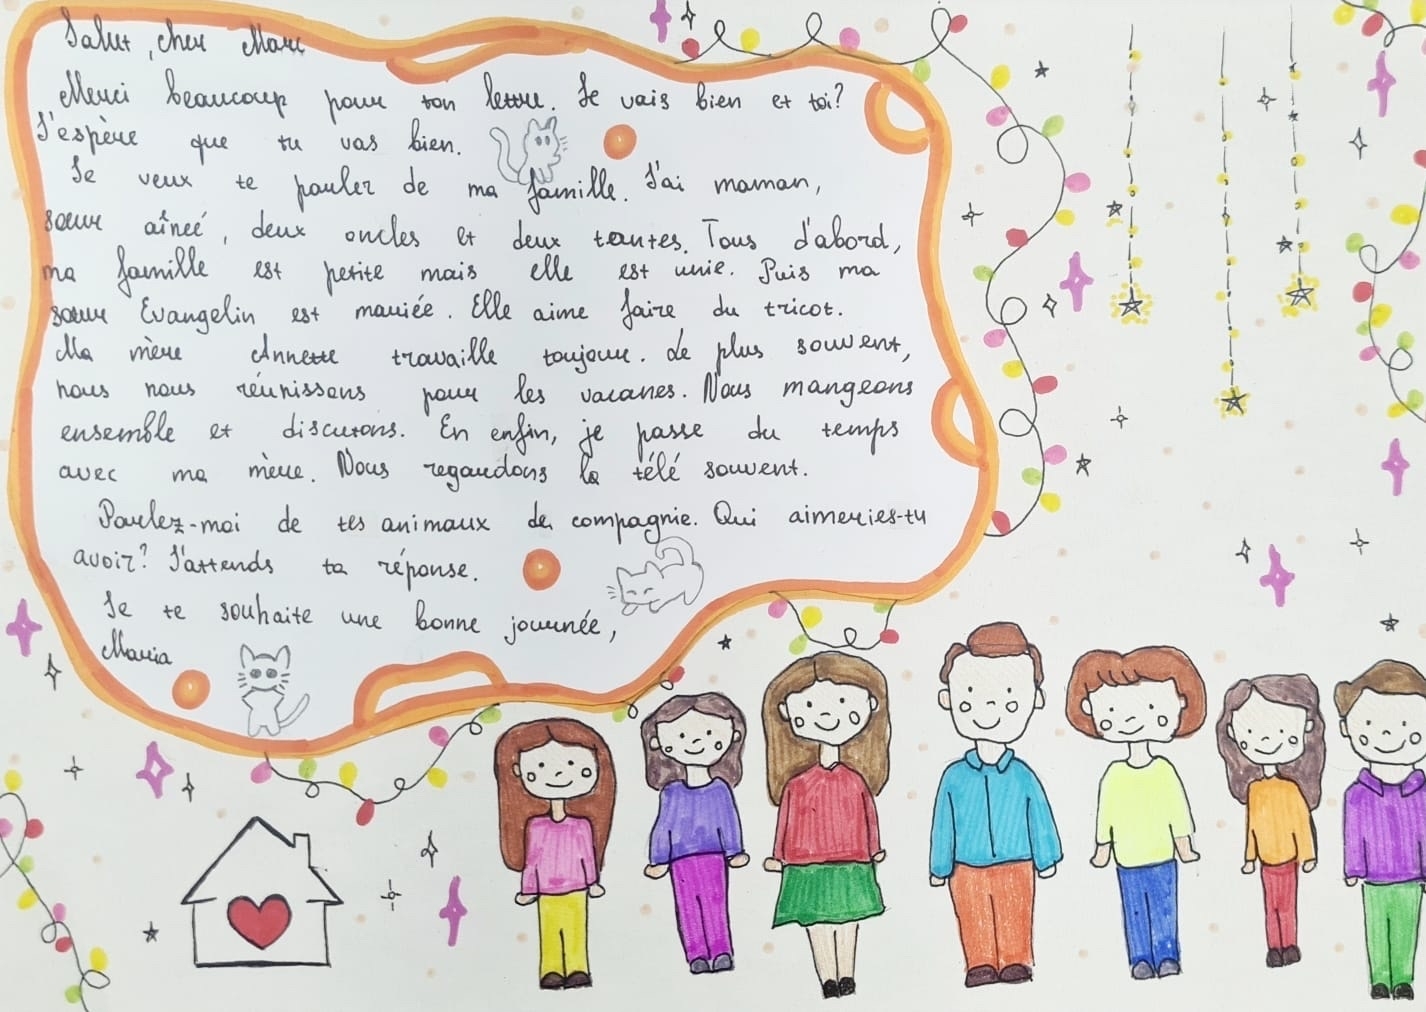 Salut, cher Marc
Merci beaucoup pour ton lettre. Je vais bien et toi?
J'espère que tu vas bien.
Je veux te parler de ma famille. J'ai maman,
sœur aîneé, deux oncles et deux tantes. Tous d'abord,
ma famille est petite mais elle est unie. Puis ma
sœur Evangelin est mariée. Elle aime faire du tricot.
Ma mère Annette travaille toujour. Le plus souvent,
nous nous réunissons pour les vacanes. Nous mangeons
ensemble et discutons. En enfin, je passe du temps
avec ma mère. Nous regardons la télé souvent.
Parlez-moi de tes animaux de compagnie. Qui aimeries-tu
avoir? J'attends ta réponse.
Je te souhaite une bonne journée,
Maria